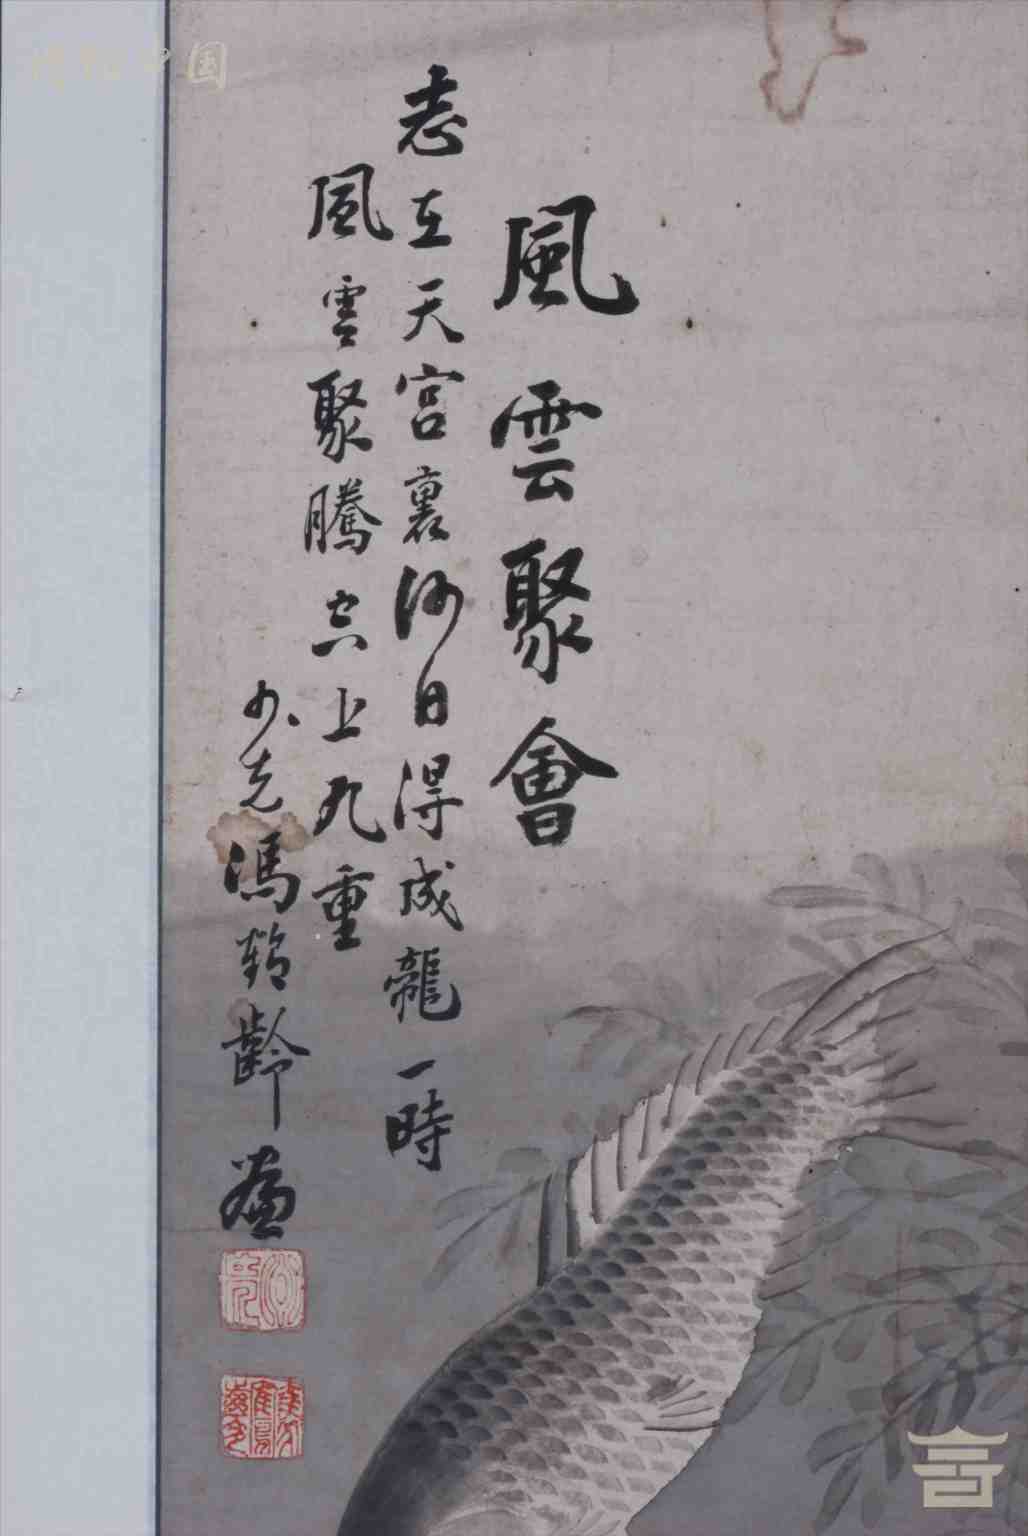 風雲聚會
志在天宮裏何日得成龍一時
風雲聚騰空上九重
少克馮鶴齡畫